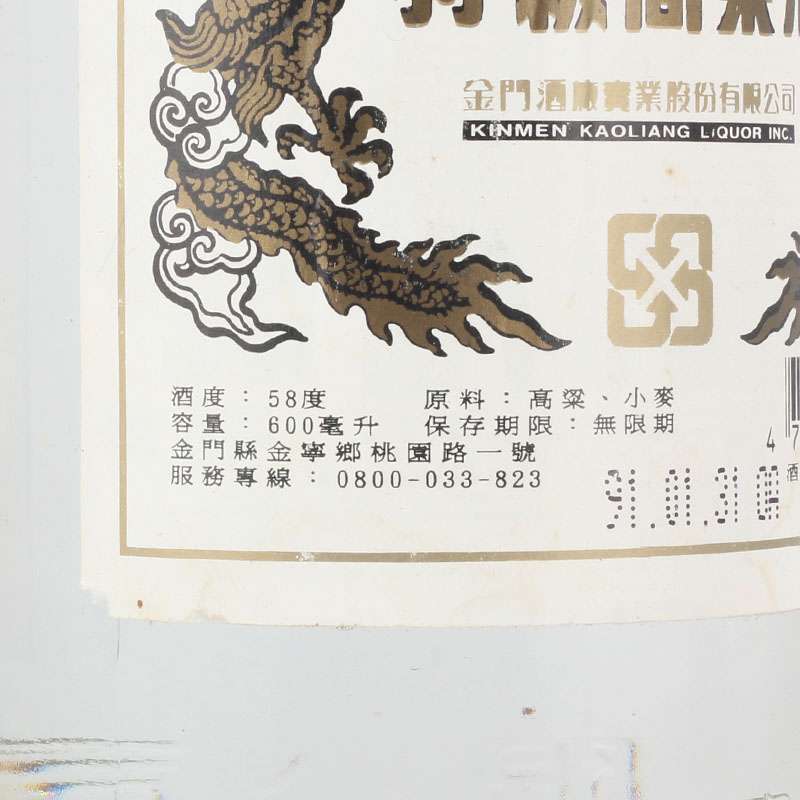 特級高粱酒
金門酒廠實業股份有限公司
KINMEN KAOLIANG LIQUOR INC.
酒度：58度 原料：高粱、小麥
容量：600毫升 保存期限：無限期
金門縣金寧鄉桃園路一號
服務專線：0800-033-823
4 7
91.01.31
酒